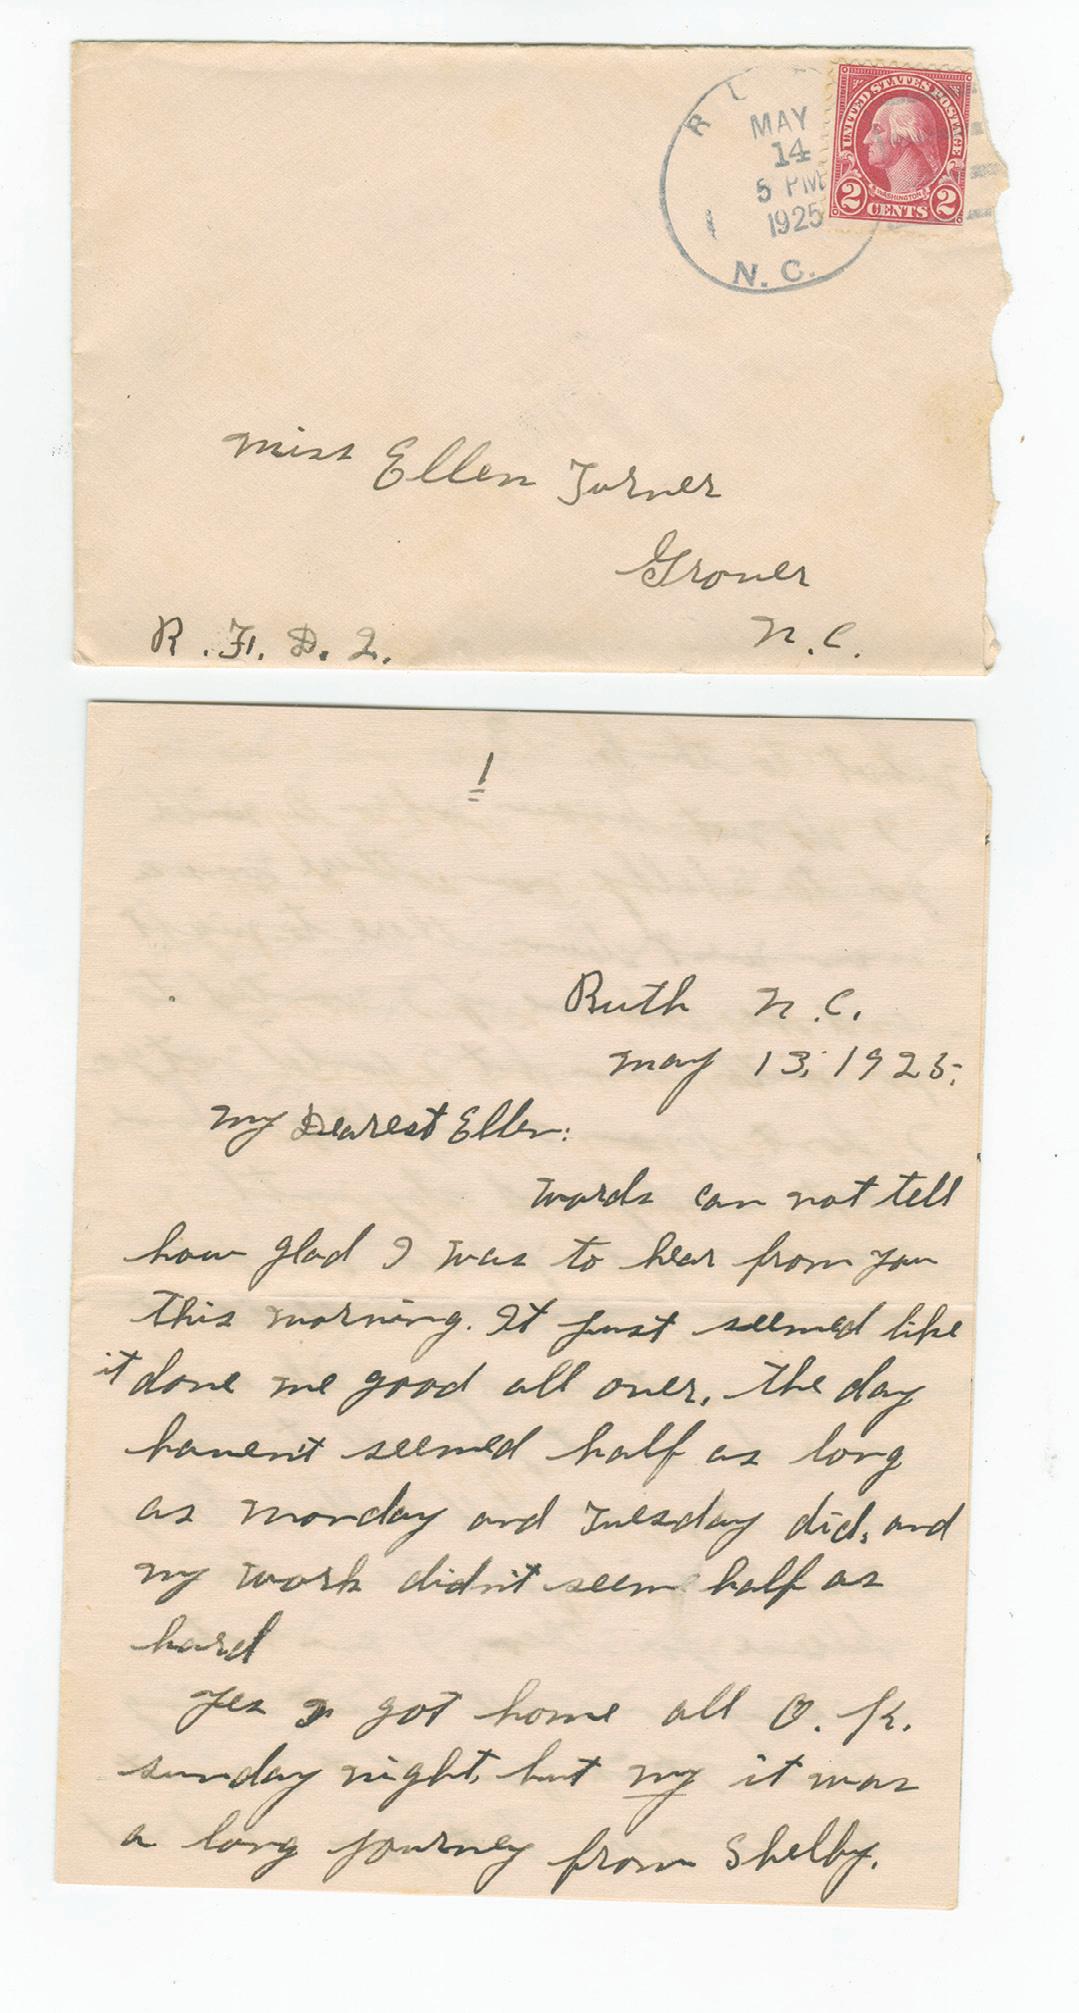 R U
MAY
14
5 PM
1925
N. C.
UNITED STATES POSTAGE
WASHINGTON
2 CENTS 2
Miss Ellen Turner
Grover
N.C.
R.F.D. 2.
1
Ruth N.C.
May 13, 1925.
My Dearest Ellen:
Words can not tell
how glad I was to hear from you
this morning. It just seemed like
it done me good all over, the day
haven't seemed half as long
as Monday and Tuesday did, and
my work didn't seem half as
hard
Yes I got home all O. K.
Sunday night, but my it was
a long journey from Shelby.